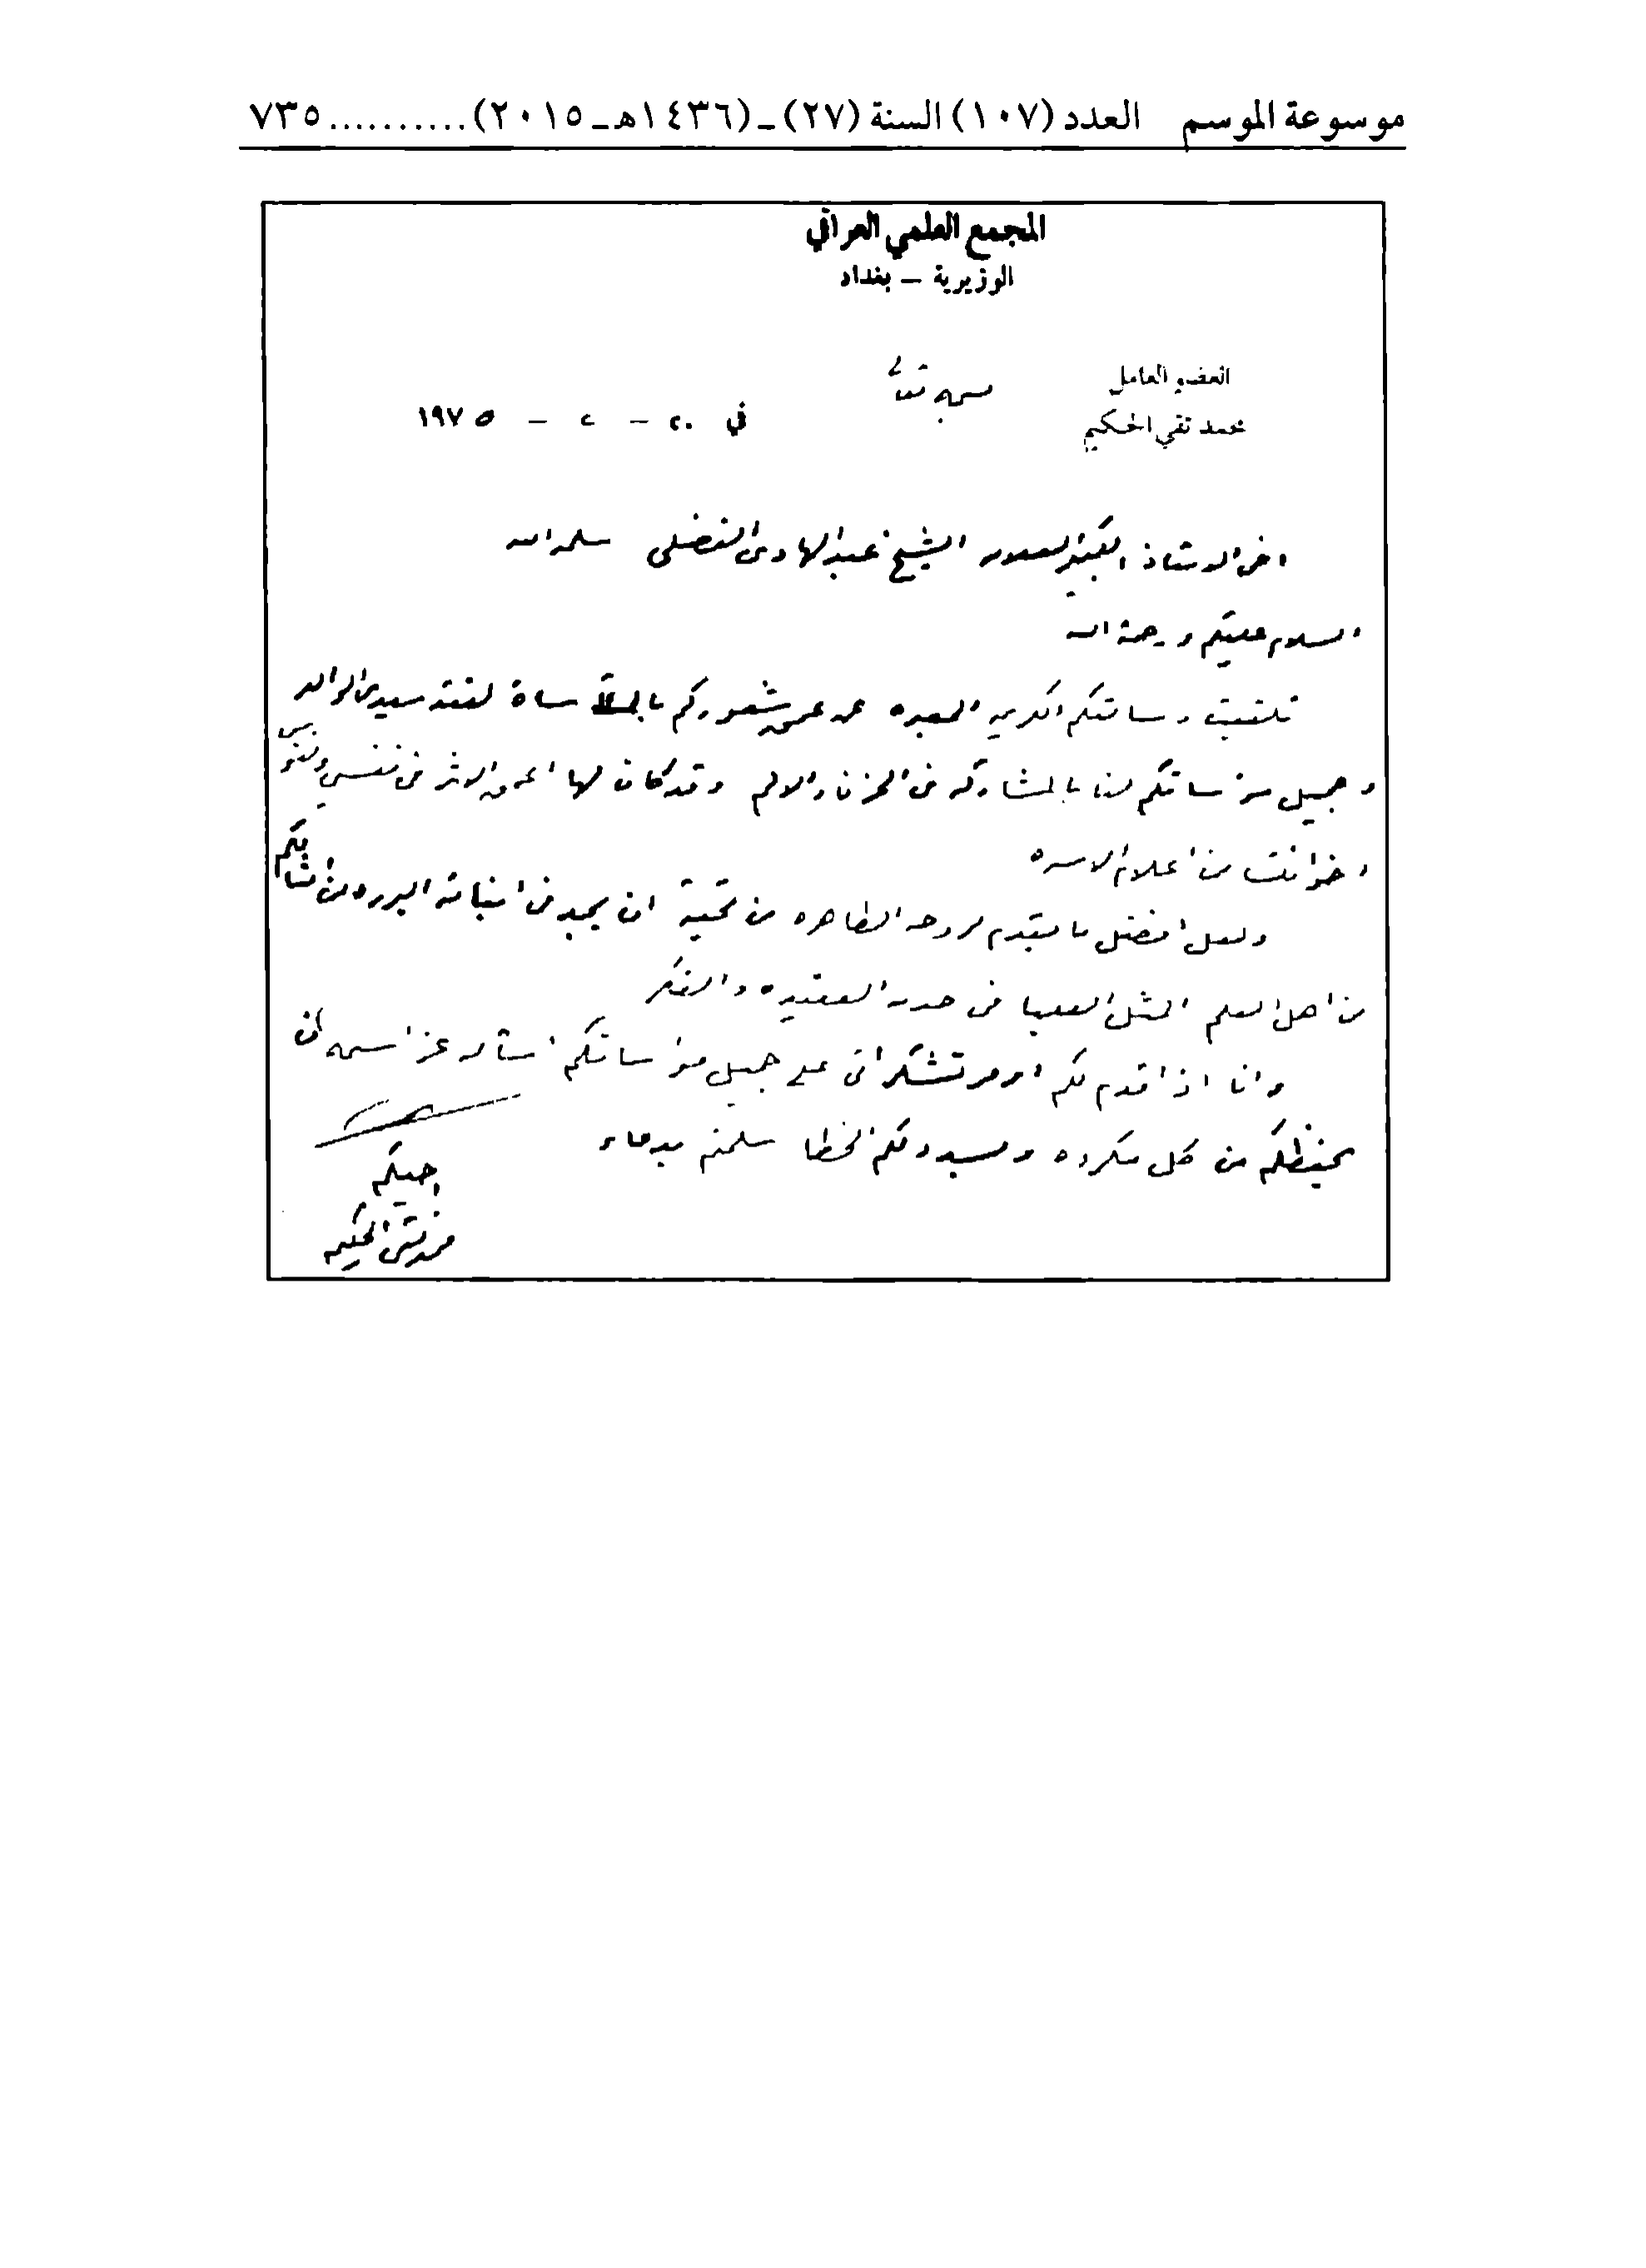 موسوعة الموسم العدد (١٠٧) السنة (٢٧) ـ (١٤٣٦هـ ـ ٢٠١٥) .......... ٧٣٥
المجمع العلمي العراقي
الوزيرية – بغداد
العضو العامل
باسمه تعالى
محمد تقي الحكيم
في ٢٠ – ٢ – ١٩٧٥
اخي الاستاذ الكبير العلامه الشيخ عبد الهادي الفضلي سلمه الله
السلام عليكم ورحمة الله
تلقيت رسالتكم الكريمه المعبره عن عمق شعوركم بالمأساة لفقد سيدي الوالد
وجميل مؤاساتكم لنا بالمشاركه في الحزن والالم وقد كان لها اعمق الاثر في نفسي ونفوس
اخواننا من اعلام الاسره
ولعل افضل ما يقدم لروحه الطاهره من تحية ان يجد في ابنائه البرره من امثالكم
من اهل العلم المثل العليا في خدمة العقيده والفكر
وانا اذ اقدم لكم اوفر تشكراتي على جميل مؤاساتكم اسأله عز اسمه ان
يحفظكم من كل مكروه ويسدد لكم الخطا سلمتم
محمد تقي الحكيم